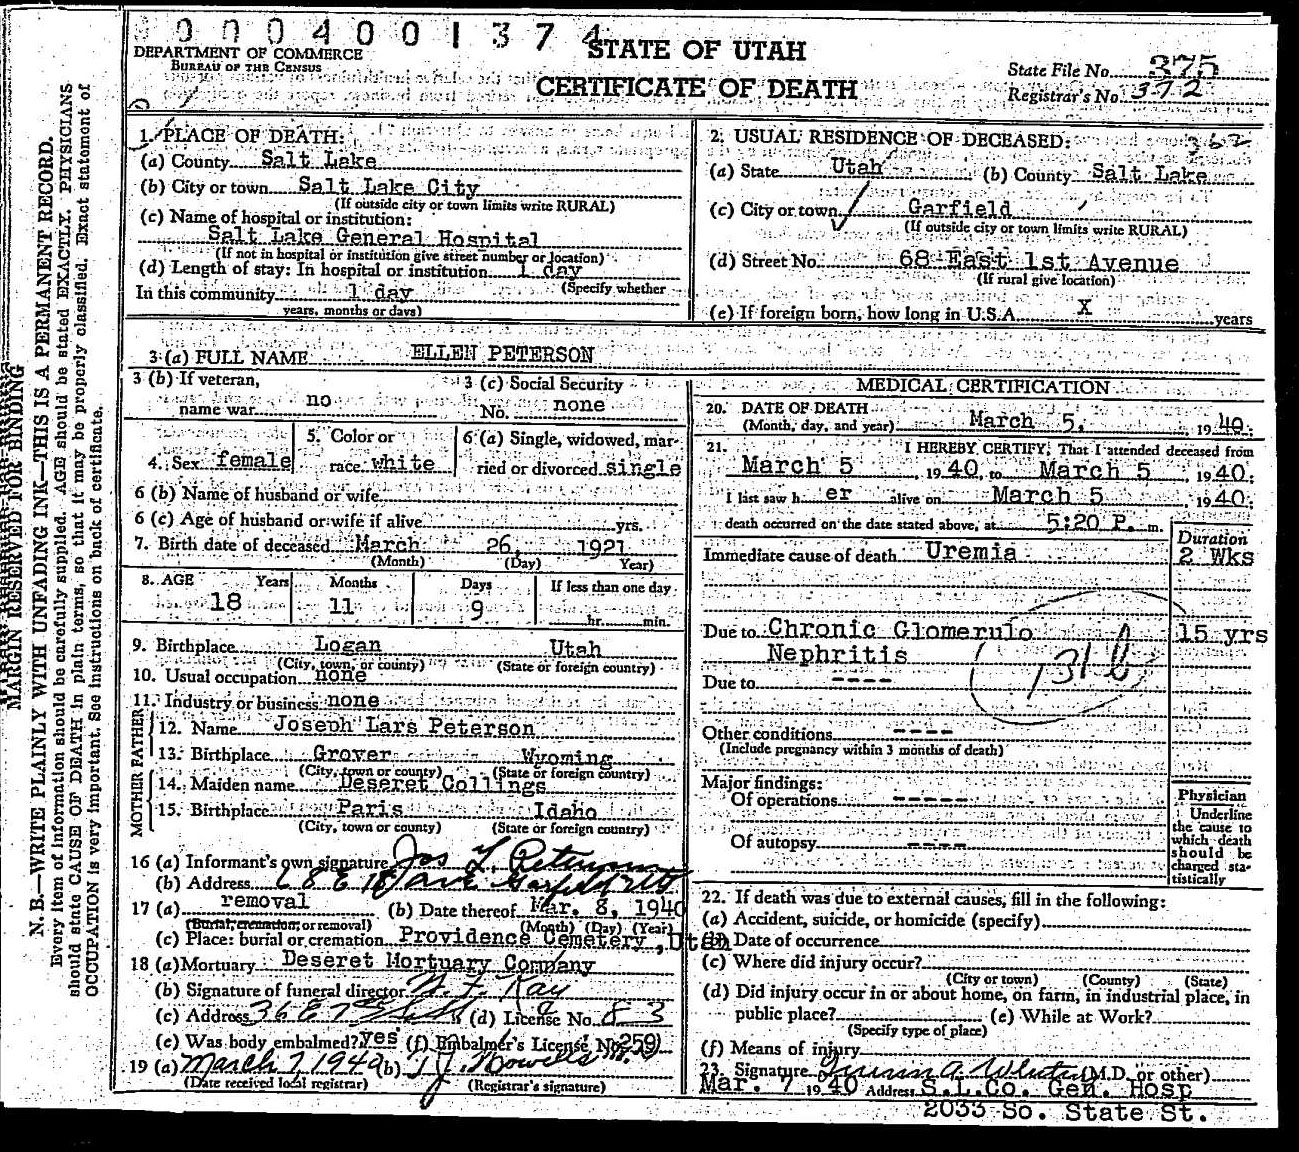 0 0 0 4 0 0 1 3 7 4
DEPARTMENT OF COMMERCE
BUREAU OF THE CENSUS
STATE OF UTAH
CERTIFICATE OF DEATH
State File No. 375
Registrar's No. 372
1. PLACE OF DEATH:
(a) County Salt Lake
(b) City or town Salt Lake City
(If outside city or town limits write RURAL)
(c) Name of hospital or institution:
Salt Lake General Hospital
(If not in hospital or institution give street number or location)
(d) Length of stay: In hospital or institution 1 day
(Specify whether
In this community 1 day
years, months or days)
2. USUAL RESIDENCE OF DECEASED: 362
(a) State Utah (b) County Salt Lake
(c) City or town Garfield
(If outside city or town limits write RURAL)
(d) Street No. 68 East 1st Avenue
(If rural give location)
(e) If foreign born, how long in U.S.A. X years
3 (a) FULL NAME ELLEN PETERSON
3 (b) If veteran, name war no
3 (c) Social Security No. none
4. Sex female
5. Color or race white
6 (a) Single, widowed, married or divorced single
6 (b) Name of husband or wife
6 (c) Age of husband or wife if alive yrs.
7. Birth date of deceased March 26, 1921
(Month) (Day) Year)
8. AGE Years Months Days If less than one day
18 11 9 hr. min.
9. Birthplace Logan Utah
(City, town, or county) (State or foreign country)
10. Usual occupation none
11. Industry or business none
FATHER
12. Name Joseph Lars Peterson
13. Birthplace Grover Wyoming
(City, town or county) (State or foreign country)
MOTHER
14. Maiden name Deseret Collings
15. Birthplace Paris Idaho
(City, town or county) (State or foreign country)
16 (a) Informant's own signature Jos L Peterson
(b) Address 68 E 1st Ave Garfield Ut
17 (a) removal (b) Date thereof Mar. 8, 1940
(Burial, cremation, or removal) (Month) (Day) (Year)
(c) Place: burial or cremation Providence Cemetery, Utah
18 (a) Mortuary Deseret Mortuary Company
(b) Signature of funeral director
(c) Address 36 E 7 (d) License No. 83
(e) Was body embalmed? yes (f) Embalmer's License No. 259
19 (a) March 7, 1940 (b) T J Howells
(Date received local registrar) (Registrar's signature)
MEDICAL CERTIFICATION
20. DATE OF DEATH
(Month, day, and year) March 5, 1940.
21. I HEREBY CERTIFY, That I attended deceased from
March 5 1940, to March 5 1940;
I last saw h er alive on March 5 1940;
death occurred on the date stated above, at 5:20 P. m.
Duration
Immediate cause of death Uremia 2 Wks
Due to Chronic Glomerulo Nephritis 15 yrs
131b
Due to ----
Other conditions ----
(Include pregnancy within 3 months of death)
Major findings:
Of operations -----
Of autopsy ----
Physician
Underline
the cause to
which death
should be
charged sta-
tistically
22. If death was due to external causes, fill in the following:
(a) Accident, suicide, or homicide (specify)
(b) Date of occurrence
(c) Where did injury occur?
(City or town) (County) (State)
(d) Did injury occur in or about home, on farm, in industrial place, in
public place? (e) While at Work?
(Specify type of place)
(f) Means of injury
23. Signature (M.D. or other)
Mar. 7 1940 Address S.L.Co. Gen. Hosp
2033 So. State St.
MARGIN RESERVED FOR BINDING
N. B.—WRITE PLAINLY WITH UNFADING INK—THIS IS A PERMANENT RECORD.
Every item of information should be carefully supplied. AGE should be stated EXACTLY. PHYSICIANS
should state CAUSE OF DEATH in plain terms, so that it may be properly classified. Exact statement of
OCCUPATION is very important. See instructions on back of certificate.